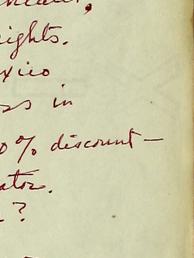 ights.
xico
ss in
0% discount—
ator.
?